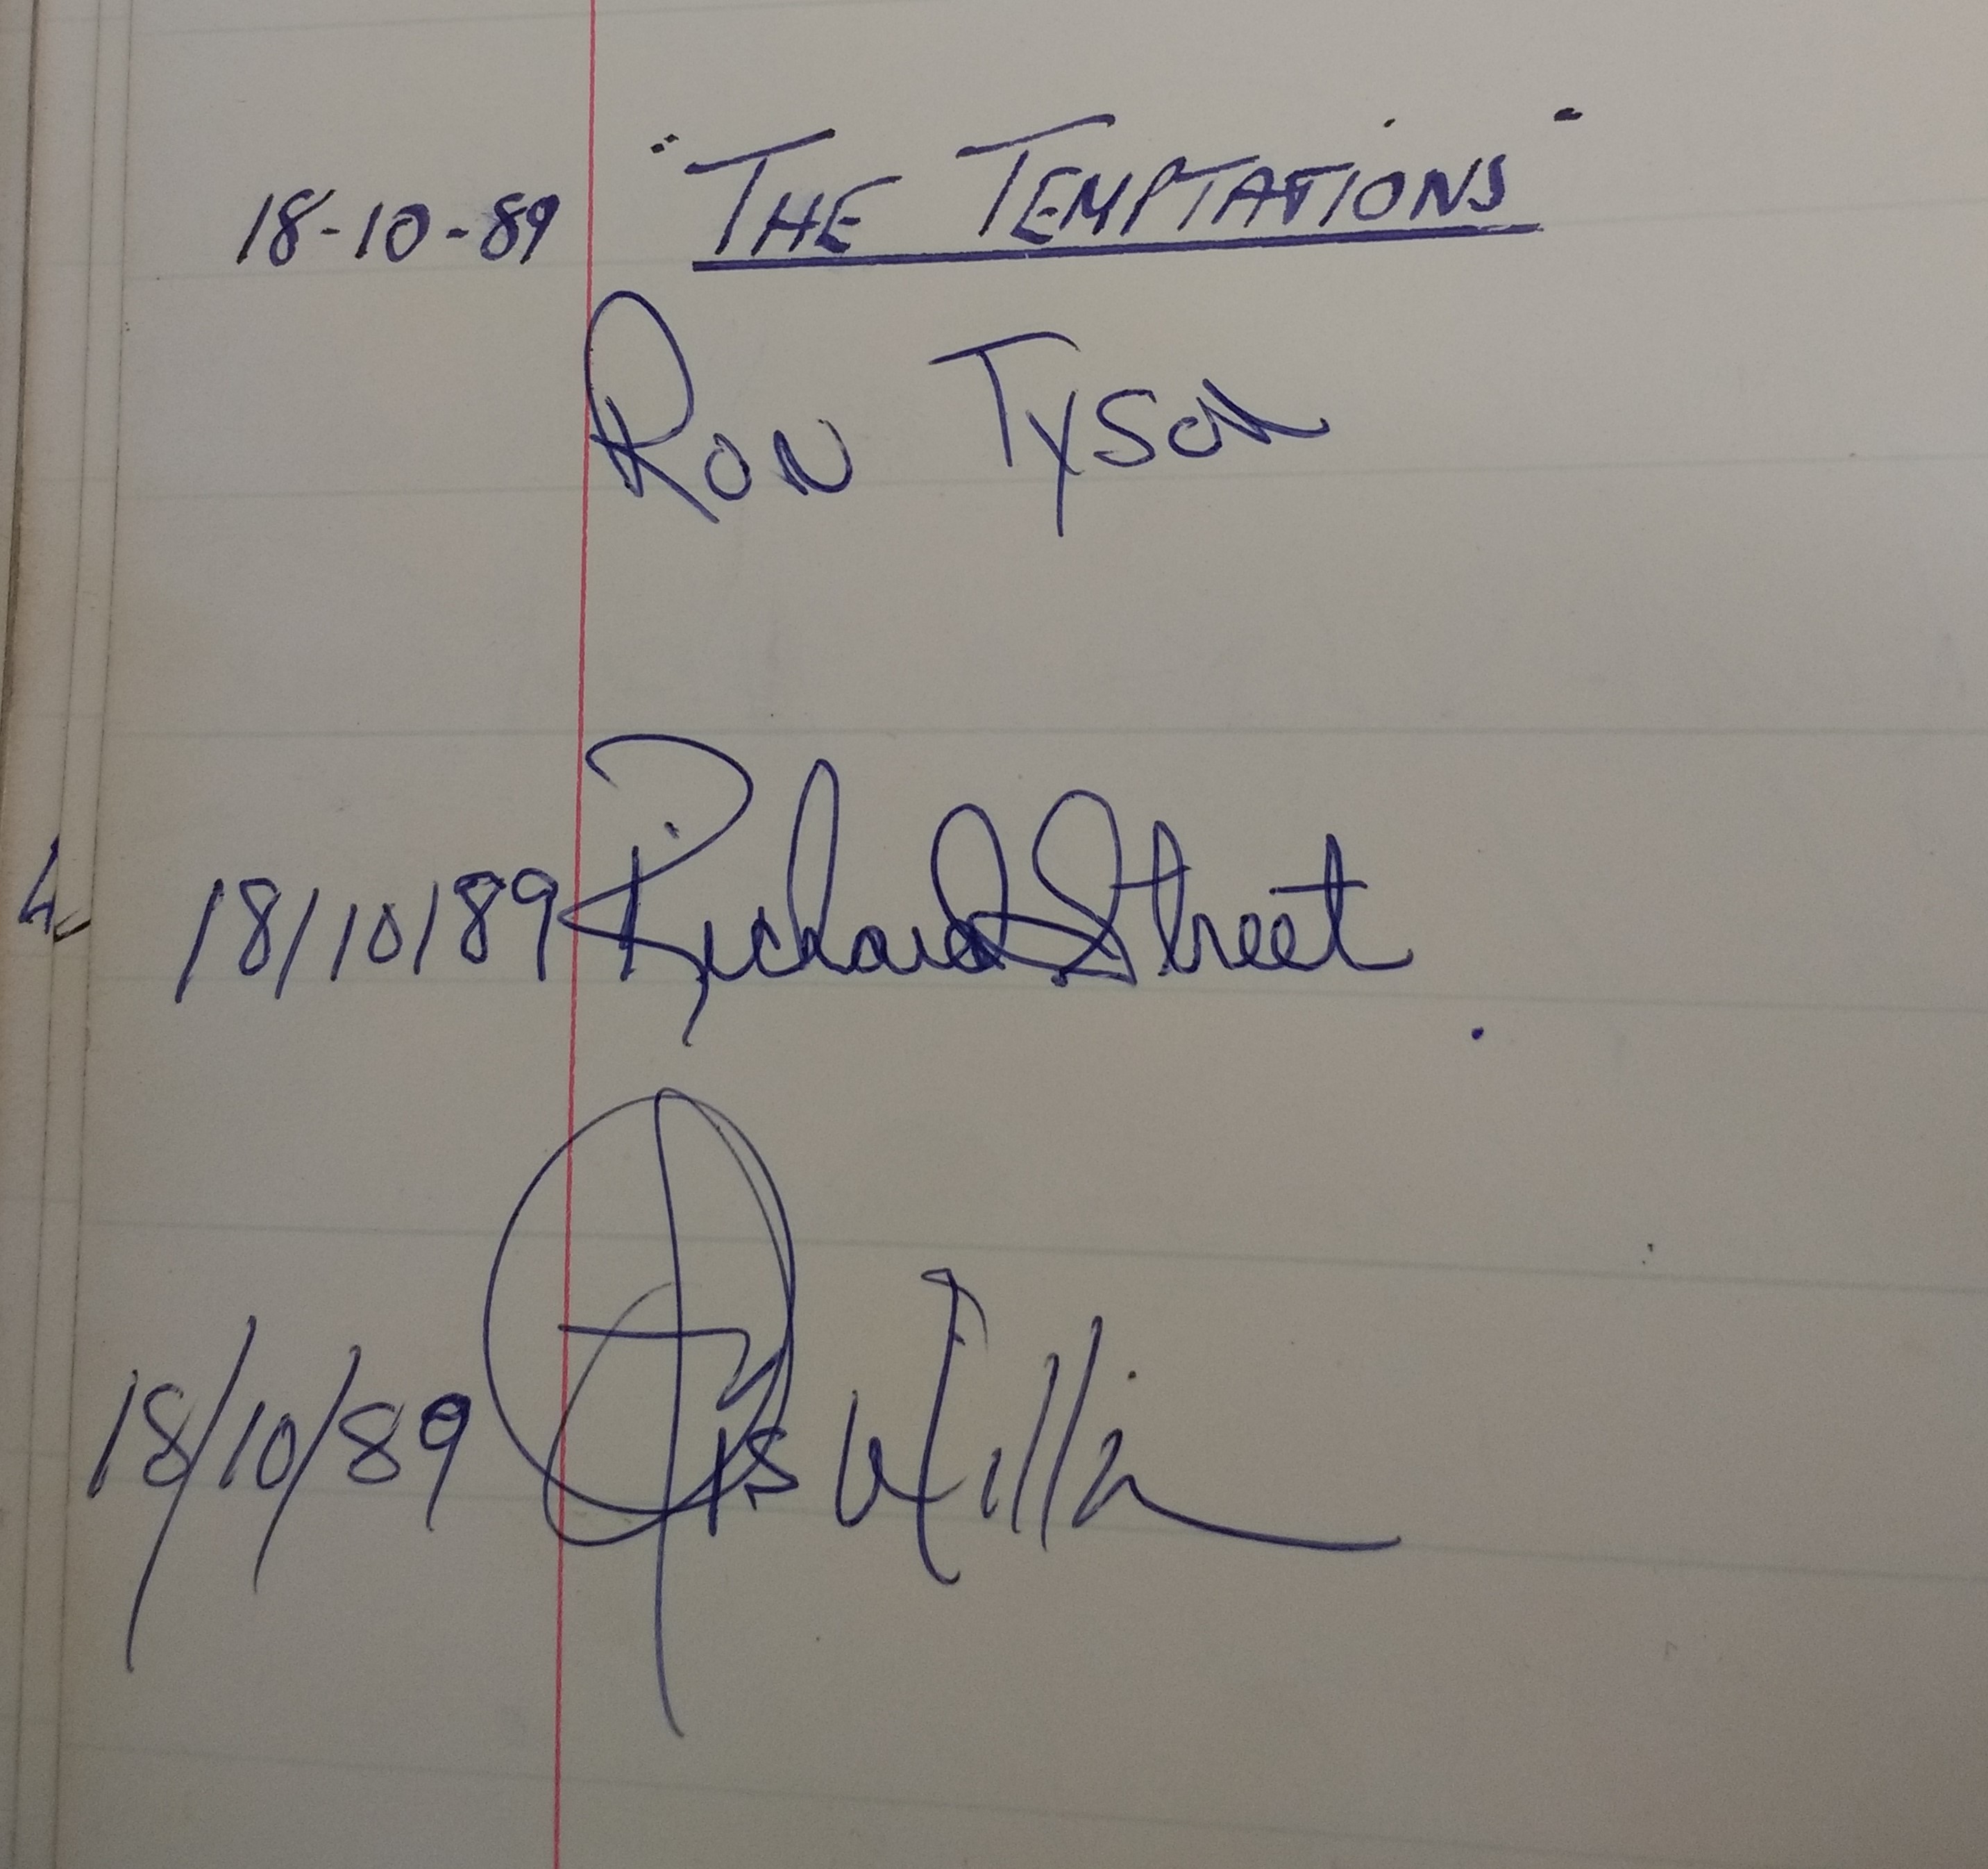 18-10-89 "THE TEMPTATIONS"
RON TYSON
18/10/89 Richard Street.
18/10/89 Otis Willia